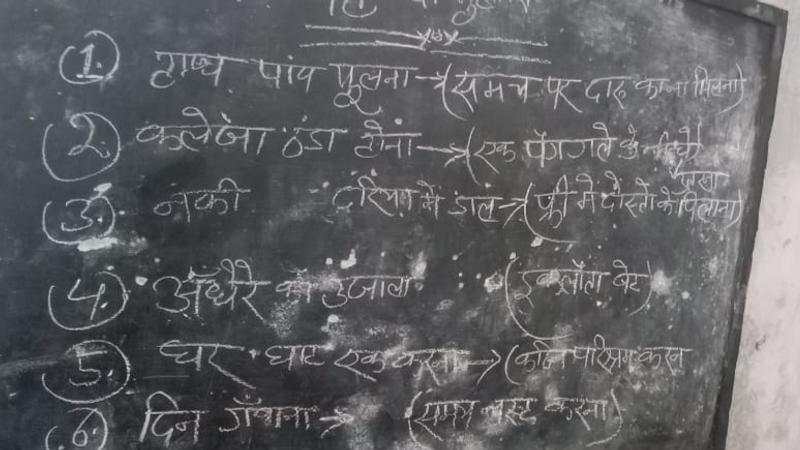 ① हाथ पांव फूलना → (समय पर दारू का ना मिलना)
② कलेजा ठंडा होना → (एक
③ नकी दरिया में डाल → (फ्री में दोस्तो को पिलाना)
④ अँधेरे का उजाला (इकलौता बेटा)
⑤ घर घाट एक करना → (कठिन परिश्रम करना
⑥ दिन गँवाना → (समय नस्ट करना)